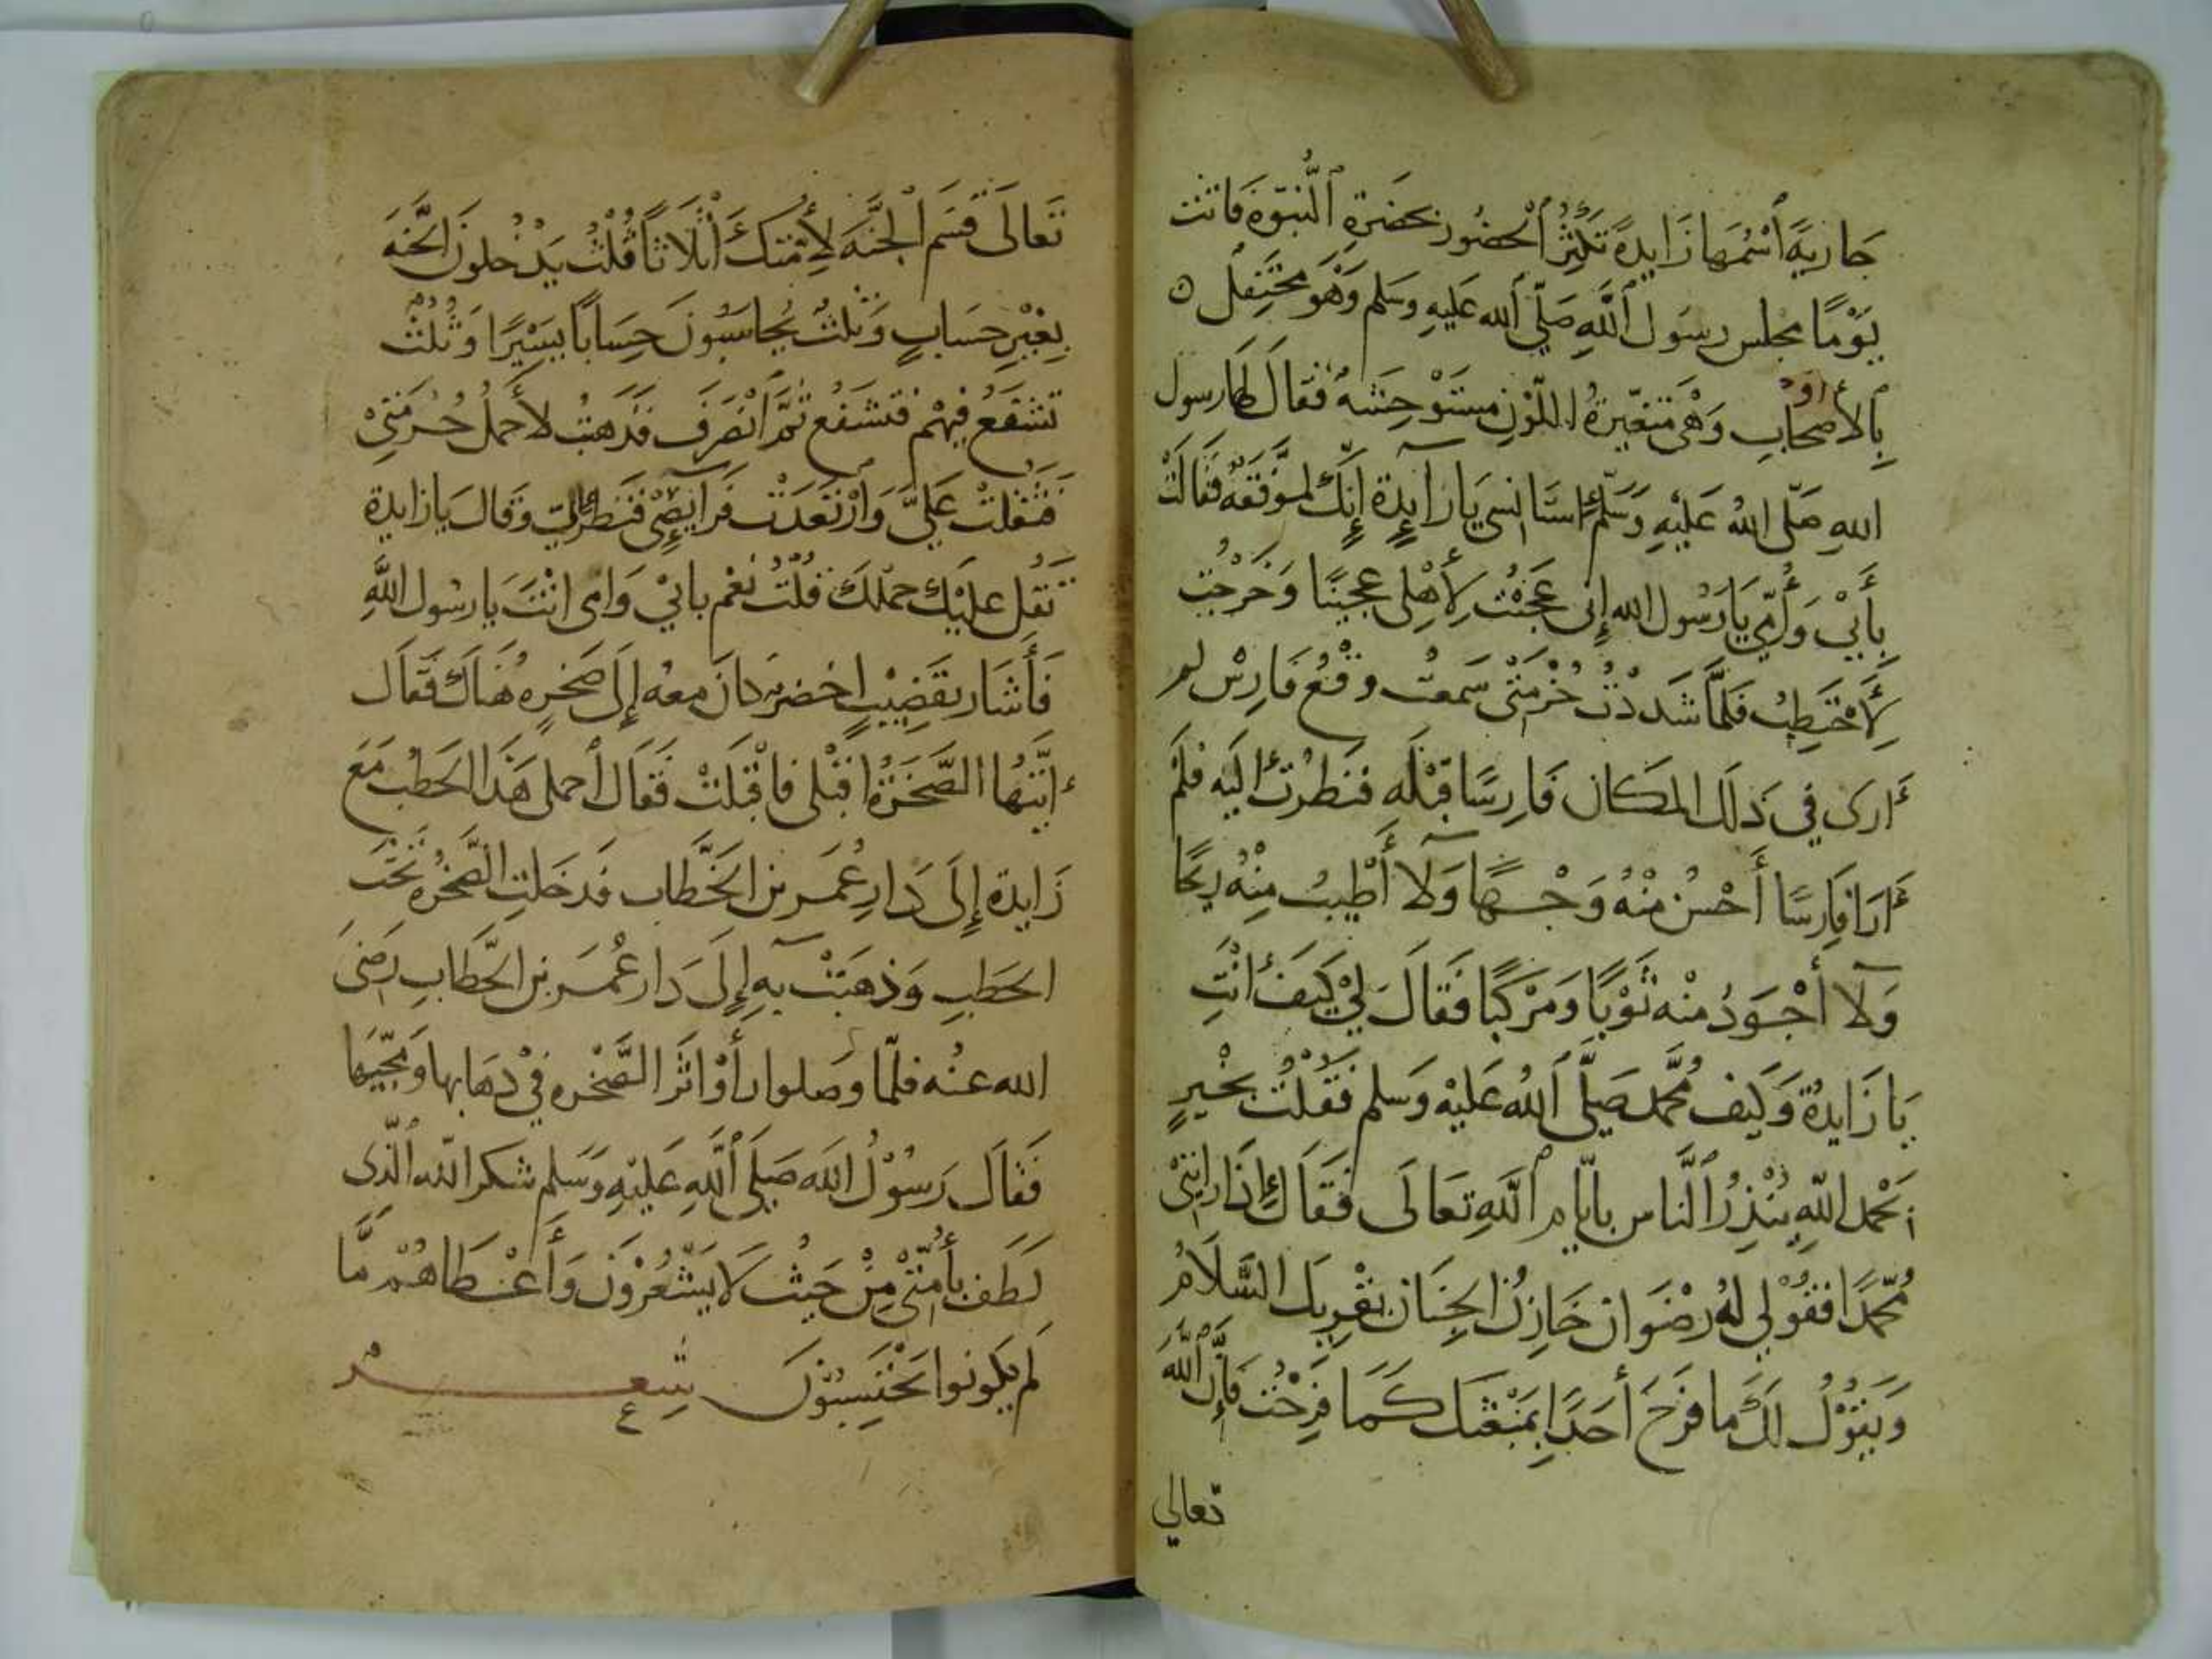 جَارِيَةً ٱسْمُهَا زَايِدَةُ تُكْثِرُ ٱلْحُضُورَ بحَضرَةِ ٱلنُّبوّةِ فَاتت
يَوْمًا مجلس رسول ٱللَّهِ صَلّى ٱلله عَليهِ وسَلم وَهْوَ مُحْتَفِلٌ ٥
بِٱلأصحَابِ وَهْىَ متغيّرةُ اللّوْنِ مستَوْحِشَهُ فَقالَ لها رسول
اللهِ صَلّى اللهُ عَليْهِ وَسَلّم يَا زَآيِدة إنَّكِ لموَفّقه فقَالَتْ
بِأَبْي وَأُمّي يَا رَسُول الله إنِى عَجَنْتُ لِأهْلِى عَجِينًا وَخَرَجْتُ
لِأَحْتَطِبُ فَلمَّا شَدَدْتُ حُزْمَتْى سَمعتُ وقْعُ فَارِسْ لم
أرى في ذلك المكان فارِسًا قبْلَه فنَظرْتُ اليه فلَمْ
أرَا فارِسًا أَحْسنْ مِنْهُ وَجْهًا وَلَا أَطْيبُ مِنْهُ رِيحًا
وَلَا أَجْوَدُ منْه ثَوْبًا وَمرْكَبًا فَقَالَ لِيْ كيَفَ أَنْتِ
يَا زَايِدةُ وَكَيف مُحَّمد صَلَّى ٱللهُ عَليْهِ وَسَلم فَقُلْتُ بخْيرٍ
بَحْمد اللّهِ يُنْذِرُ ٱلنَّاس بايّام ٱللَّهِ تعَالَى فَقَالَ إذَا رايتْى
مُحّمدًا فقُوْلي لهُ رضْوَان خَازِنُ الجِنَان يقْرِيك السَّلَامُ
وَيَقُوْلُ لكَ ما فَرَحَ أحَدًا بِمَبْعَثِكَ كَمَا فَرِحْتُ فإنَّ ٱللَّهَ
تعالى
تَعالَى قَسَم الجَنَّهَ لِأُمَّتكَ أثْلَاثًا فَثُلْثُ يَدْخلونَ الجنّهَ
بِغيْرِ حسَابٍ وَثلثُ يُحاسَبُونَ حِسَابًا يَسِيْرًا وَثُلْثُ
تشفَعُ فِيهْم فتشَفّع ثمَّ ٱنْصَرَف فذَهَبْتُ لأَحملُ حُزمَتِىْ
فَثقُلتْ عَليَّ وَٱرْتعَدَتْ فَرَآيِصِىْ فَنَظر إليّ وَقَالَ يَا زايدة
ثقُل عليَكِ حملكِ فقُلْتُ نعَم بابْي وَامى انْتَ يا رسُول اللَّهِ
فَأَشَار بقَضِيْبٍ اخضر كانَ معهُ إلَى صَخرِهِ هُنَاكَ فَقَالَ
أيّتهَا الصّخَرَةُ اقبْلى فاقْبَلتْ فَقالَ أحملى هَذَا الحَطبُ مَعَ
زَايدة إلَى دَارِ عُمَر بن الخَطَّاب فَدخَلتِ الصَّخْرُه تَحْتَ
الحَطبِ وَذهَبَتْ بهِ إلَى دَار عُمَر بن الخَّطابِ رضىَ
الله عنْه فلمّا وصَلوا رأوْا اثَرَ الصَّخْره فيْ ذهَابها وَمجّيهَا
فَقاَلَ رَسُوْلُ اللَه صَلَى ٱللَّهِ عَليْهِ وَسَلم شكر اللّه الَّذى
لَطَف بأُمّتْى مِنْ حَيْث لَا يَشْعُرُوْن وَأَعْطَاهُمْ مَّا
لم يكُونوا يَحْتَسِبُوْنَ شِعْر